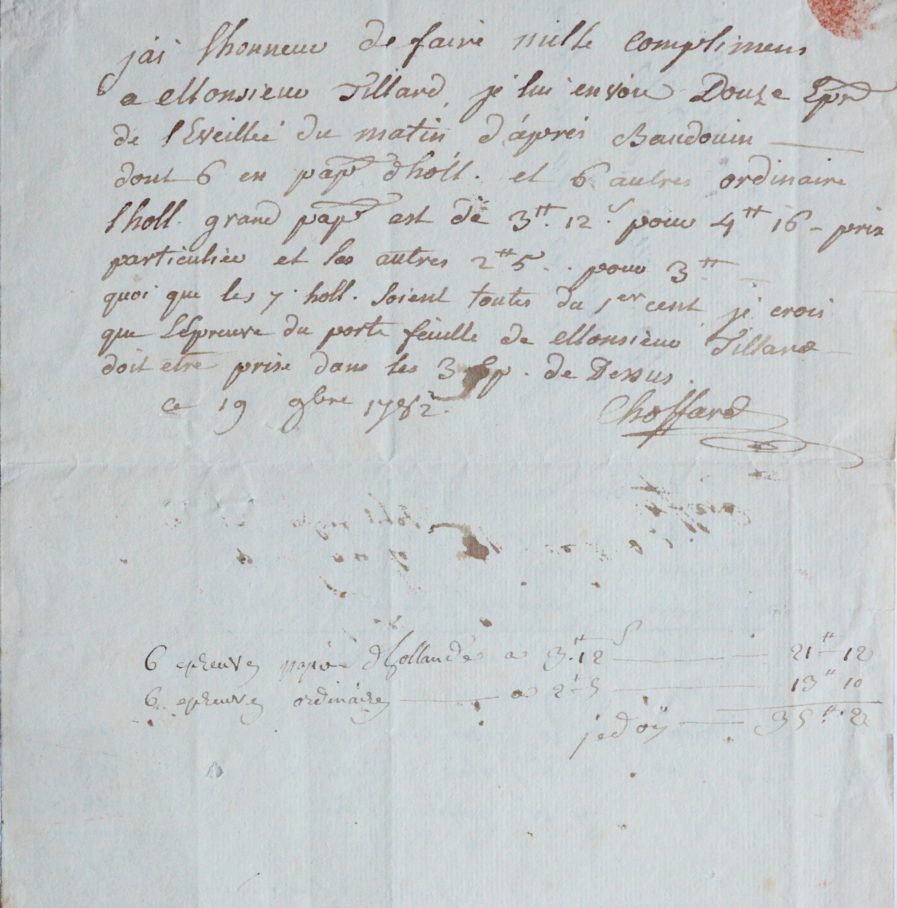 jai lhonneur de faire mille complimens
a Monsieur Tillard, je lui envoie Douze Epr
de l'Eveillée du matin d'après Baudouin
dont 6 en papr d'holl. et 6 autres ordinaire
lholl. grand papr est de 3tt. 12s pour 4tt 16 - prix
particulier et les autres 2tt 5 .. pour 3tt -
quoi que les 7. holl. soient toutes du 1er cent je crois
que l'Epreuve du porte feuille de Monsieur Tillard
doit etre prise dans les 3 Ep. de Dessus.
ce 19 9bre 1782.
Choffard
6 epreuves papier d'hollande a 3tt.12s 21tt 12
6 epreuves ordinaires a 2tt 5 13tt 10
je doy 35tt. 2